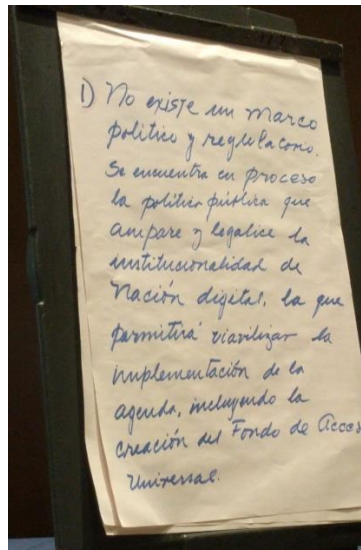 1) No existe un marco
político y regulatorio.
Se encuentra en proceso
la política pública que
ampare y legalice la
institucionalidad de
Nación digital, la que
permitirá viavilizar la
implementación de la
agenda, incluyendo la
creación del Fondo de Acces
Universal.